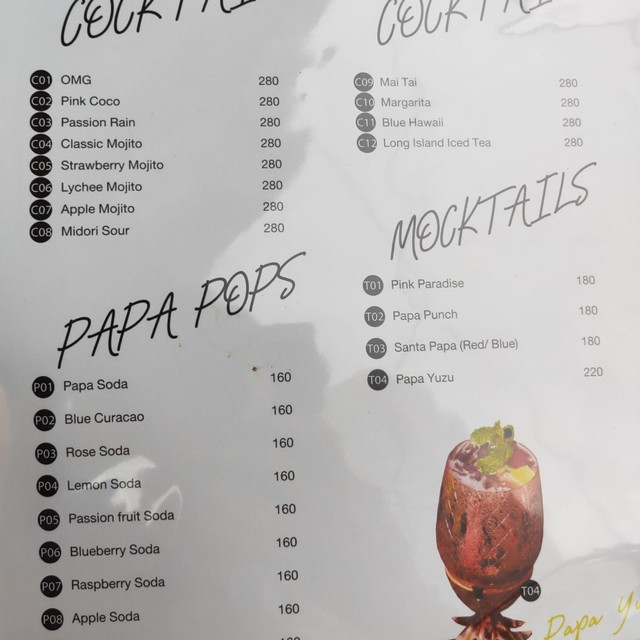 C01 OMG 280
C02 Pink Coco 280
C03 Passion Rain 280
C04 Classic Mojito 280
C05 Strawberry Mojito 280
C06 Lychee Mojito 280
C07 Apple Mojito 280
C08 Midori Sour 280
PAPA POPS
P01 Papa Soda 160
P02 Blue Curacao 160
P03 Rose Soda 160
P04 Lemon Soda 160
P05 Passion fruit Soda 160
P06 Blueberry Soda 160
P07 Raspberry Soda 160
P08 Apple Soda 160
C09 Mai Tai 280
C10 Margarita 280
C11 Blue Hawaii 280
C12 Long Island Iced Tea 280
MOCKTAILS
T01 Pink Paradise 180
T02 Papa Punch 180
T03 Santa Papa (Red/ Blue) 180
T04 Papa Yuzu 220
T04
Papa